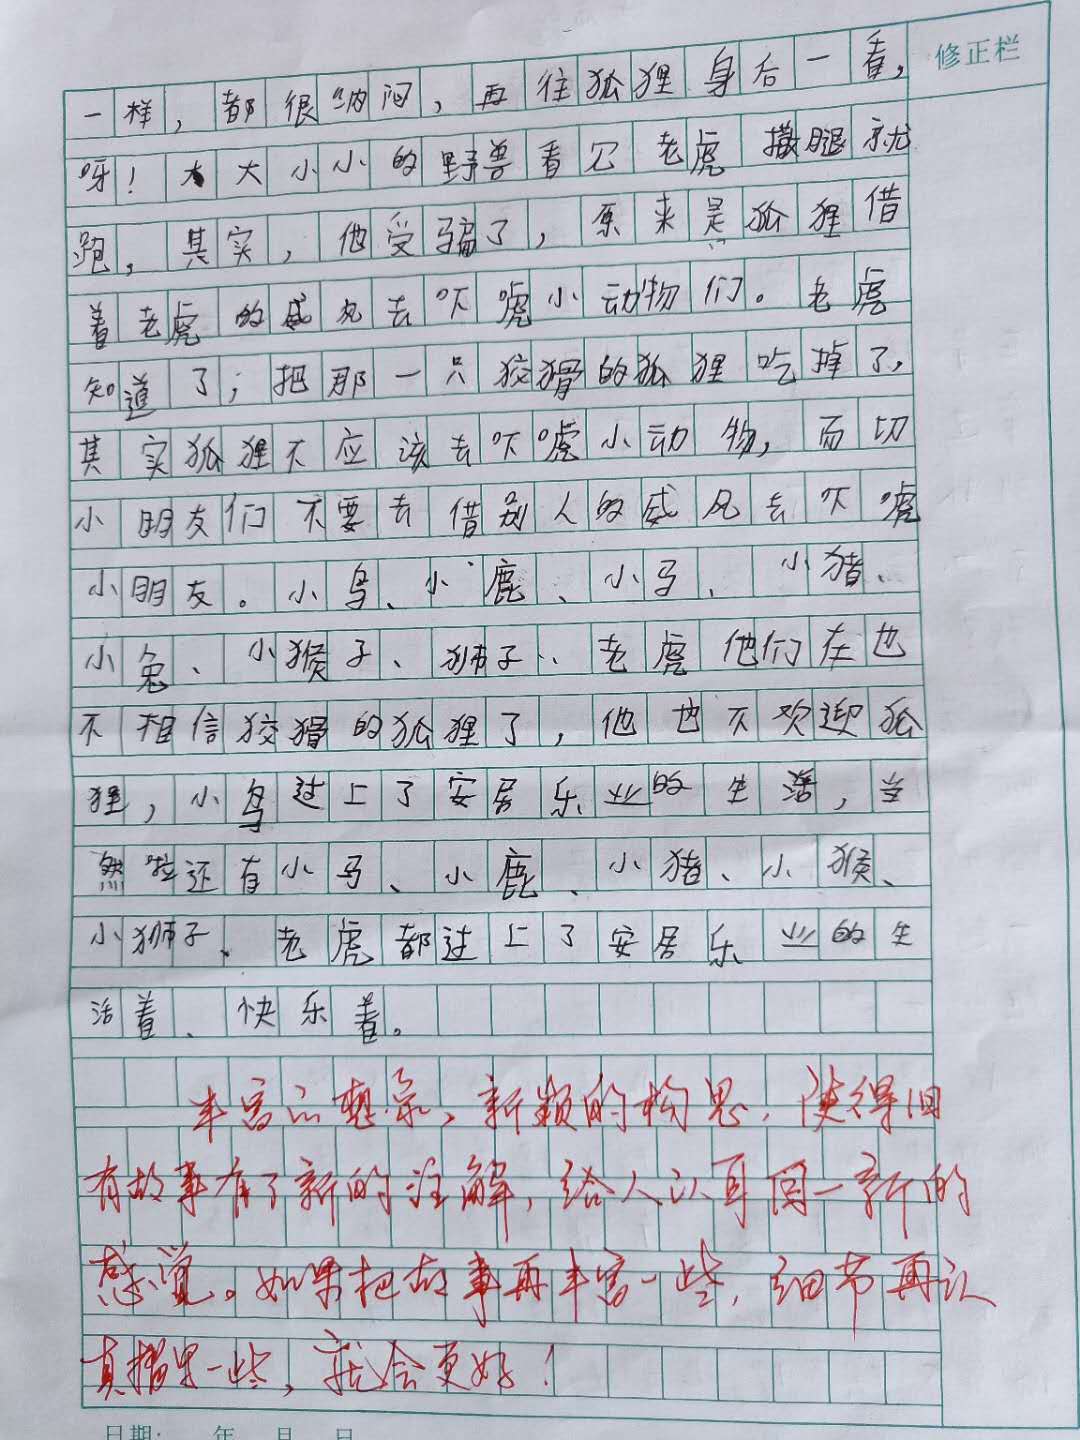 修正栏
一样，都很纳闷，再往狐狸身后一看，
呀！大大小小的野兽看见老虎撒腿就
跑，其实，他受骗了，原来是狐狸借
着老虎的威风去吓唬小动物们。老虎
知道了；把那一只狡猾的狐狸吃掉了，
其实狐狸不应该去吓唬小动物，而切
小朋友们不要去借别人的威风去吓唬
小朋友。小鸟、小鹿、小马、小猪、
小兔、小猴子、狮子、老虎他们在也
不相信狡猾的狐狸了，他也不欢迎狐
狸，小鸟过上了安居乐业的生活，当
然啦还有小马、小鹿、小猪、小猴、
小狮子、老虎都过上了安居乐业的生
活着、快乐着。
丰富的想象，新颖的构思，使得旧
有故事有了新的注解，给人以耳目一新的
感觉。如果把故事再丰富一些，细节再认
真描写一些，就会更好！
日期： 年 月 日